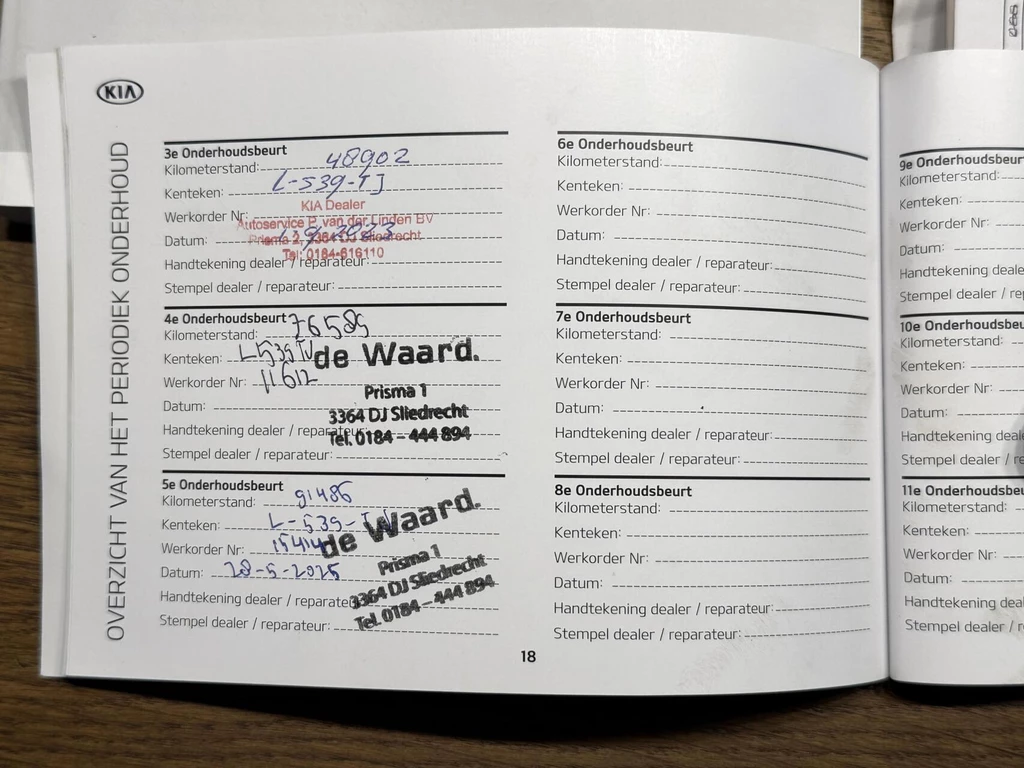 KIA
OVERZICHT VAN HET PERIODIEK ONDERHOUD
3e Onderhoudsbeurt
Kilometerstand: 48902
Kenteken: L-539-TJ
Werkorder Nr:
KIA Dealer
Autoservice P. van der Linden BV
Datum:
Prisma 2, 3364 DJ Sliedrecht
Tel: 0184-616110
Handtekening dealer / reparateur:
Stempel dealer / reparateur:
4e Onderhoudsbeurt
Kilometerstand: 76589
Kenteken: L539TJ
Werkorder Nr: 11612
de Waard.
Prisma 1
Datum:
3364 DJ Sliedrecht
Handtekening dealer / reparateur:
Tel. 0184 - 444 894
Stempel dealer / reparateur:
5e Onderhoudsbeurt
Kilometerstand: 91486
Kenteken: L-539-
Werkorder Nr: 15414
de Waard.
Datum: 28-5-2025
Prisma 1
3364 DJ Sliedrecht
Handtekening dealer / reparateur:
Tel. 0184 - 444 894
Stempel dealer / reparateur:
6e Onderhoudsbeurt
Kilometerstand:
Kenteken:
Werkorder Nr:
Datum:
Handtekening dealer / reparateur:
Stempel dealer / reparateur:
7e Onderhoudsbeurt
Kilometerstand:
Kenteken:
Werkorder Nr:
Datum:
Handtekening dealer / reparateur:
Stempel dealer / reparateur:
8e Onderhoudsbeurt
Kilometerstand:
Kenteken:
Werkorder Nr:
Datum:
Handtekening dealer / reparateur:
Stempel dealer / reparateur:
18
9e Onderhoudsbeur
Kilometerstand:
Kenteken:
Werkorder Nr:
Datum:
Handtekening deale
Stempel dealer / rep
10e Onderhoudsbeu
Kilometerstand:
Kenteken:
Werkorder Nr:
Datum:
Handtekening deale
Stempel dealer / re
11e Onderhoudsbeu
Kilometerstand:
Kenteken:
Werkorder Nr:
Datum:
Handtekening deale
Stempel dealer / r